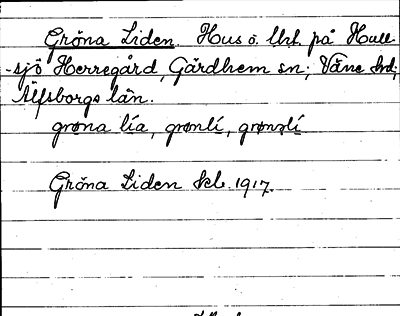 Gröna Liden. Hus o. lht. på Hull-
-sjö Herregård, Gärdhem sn; Väne hd;
Älfsborgs län.
grøna lía, grønlí, grønəlí
Gröna Liden Skl. 1917.